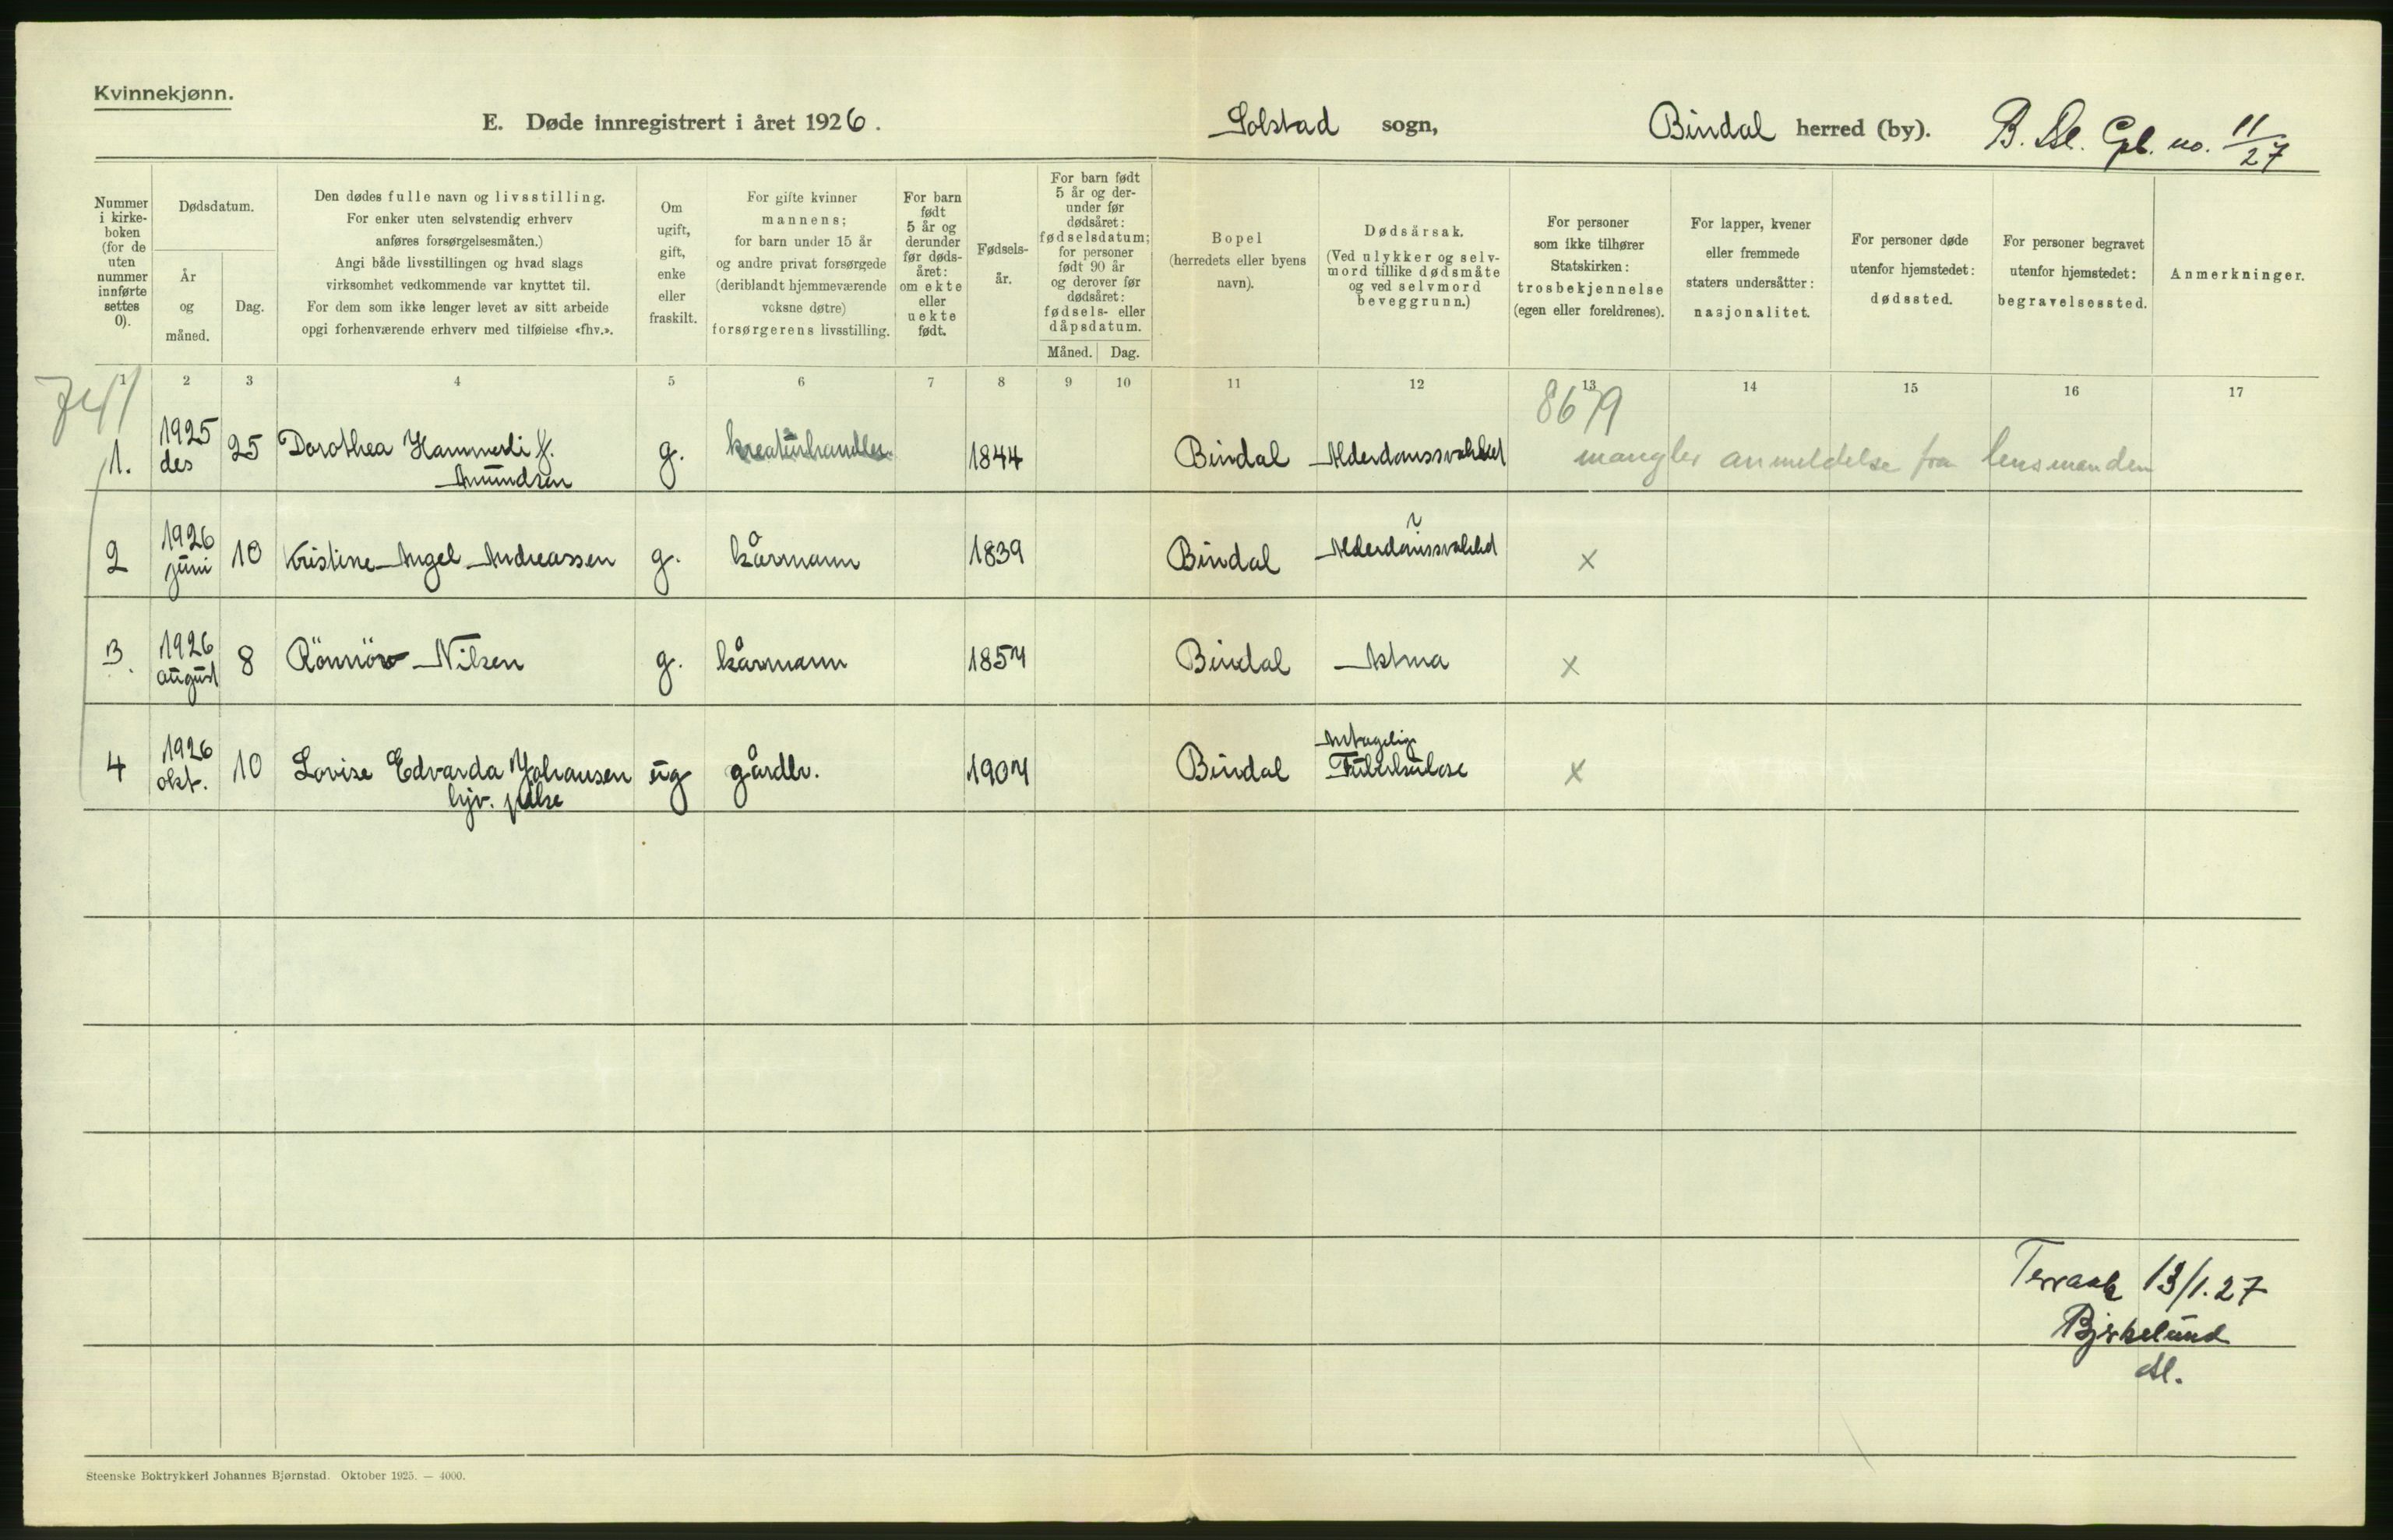 Kvinnekjønn.
E. Døde innregistrert i året 1926.
Solstad sogn,
Bindal herred (by).
B. Sl. Gpl. no. 11/27
Nummer i kirke-boken (for de uten nummer innførte settes 0).
Dødsdatum.
År og måned.
Dag.
Den dødes fulle navn og livsstilling.
For enker uten selvstendig erhverv
anføres forsørgelsesmåten.)
Angi både livsstillingen og hvad slags
virksomhet vedkommende var knyttet til.
For dem som ikke lenger levet av sitt arbeide
opgi forhenværende erhverv med tilføielse «fhv.».
Om
ugift,
gift,
enke
eller
fraskilt.
For gifte kvinner
mannens;
for barn under 15 år
og andre privat forsørgede
(deriblandt hjemmeværende
voksne døtre)
forsørgerens livsstilling.
For barn
født
5 år og
derunder
før døds-
året:
om ekte
eller
uekte
født.
Fødsels-
år.
For barn født
5 år og der-
under før
dødsåret:
fødselsdatum;
for personer
født 90 år
og derover før
dødsåret:
fødsels- eller
dåpsdatum.
Måned. Dag.
Bopel
(herredets eller byens
navn).
Dødsårsak.
(Ved ulykker og selv-
mord tillike dødsmåte
og ved selvmord
beveggrunn.)
For personer
som ikke tilhører
Statskirken:
trosbekjennelse
(egen eller foreldrenes).
For lapper, kvener
eller fremmede
staters undersåtter:
nasjonalitet.
For personer døde
utenfor hjemstedet:
dødssted.
For personer begravet
utenfor hjemstedet:
begravelsessted.
Anmerkninger.
1 2 3 4 5 6 7 8 9 10 11 12 13 14 15 16 17
741
8679
1. 1925 des 25 Dorothea Hammerli f. Amundsen g. kreaturhandler. 1844 Bindal Alderdomssvakhet mangler anmeldelse fra lensmanden
2 1926 juni 10 Kristine Angel Andreassen g. kårmann 1839 Bindal Alderdomssvakhet x
3. 1926 august 8 Rönnöv Nilsen g. kårmann 1857 Bindal Astma x
4 1926 okt. 10 Lovise Edvarda Johansen hjv. pike ug gårdbr. 1907 Bindal Antagelig Tuberkulose x
Terraak 13/1.27
Bjrkelund
Steenske Boktrykkeri Johannes Bjørnstad. Oktober 1925. — 4000.